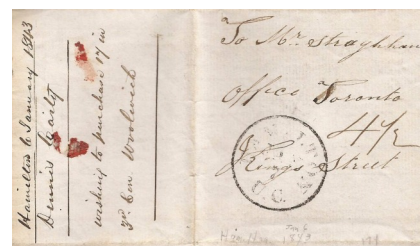 Hamilton 6 January 1843
Dennis
wishing to purchase 17 in
3d Con Woolwich
To Mr.
Office Toronto
4½
Kings Street
HAMILTON
U C
1843